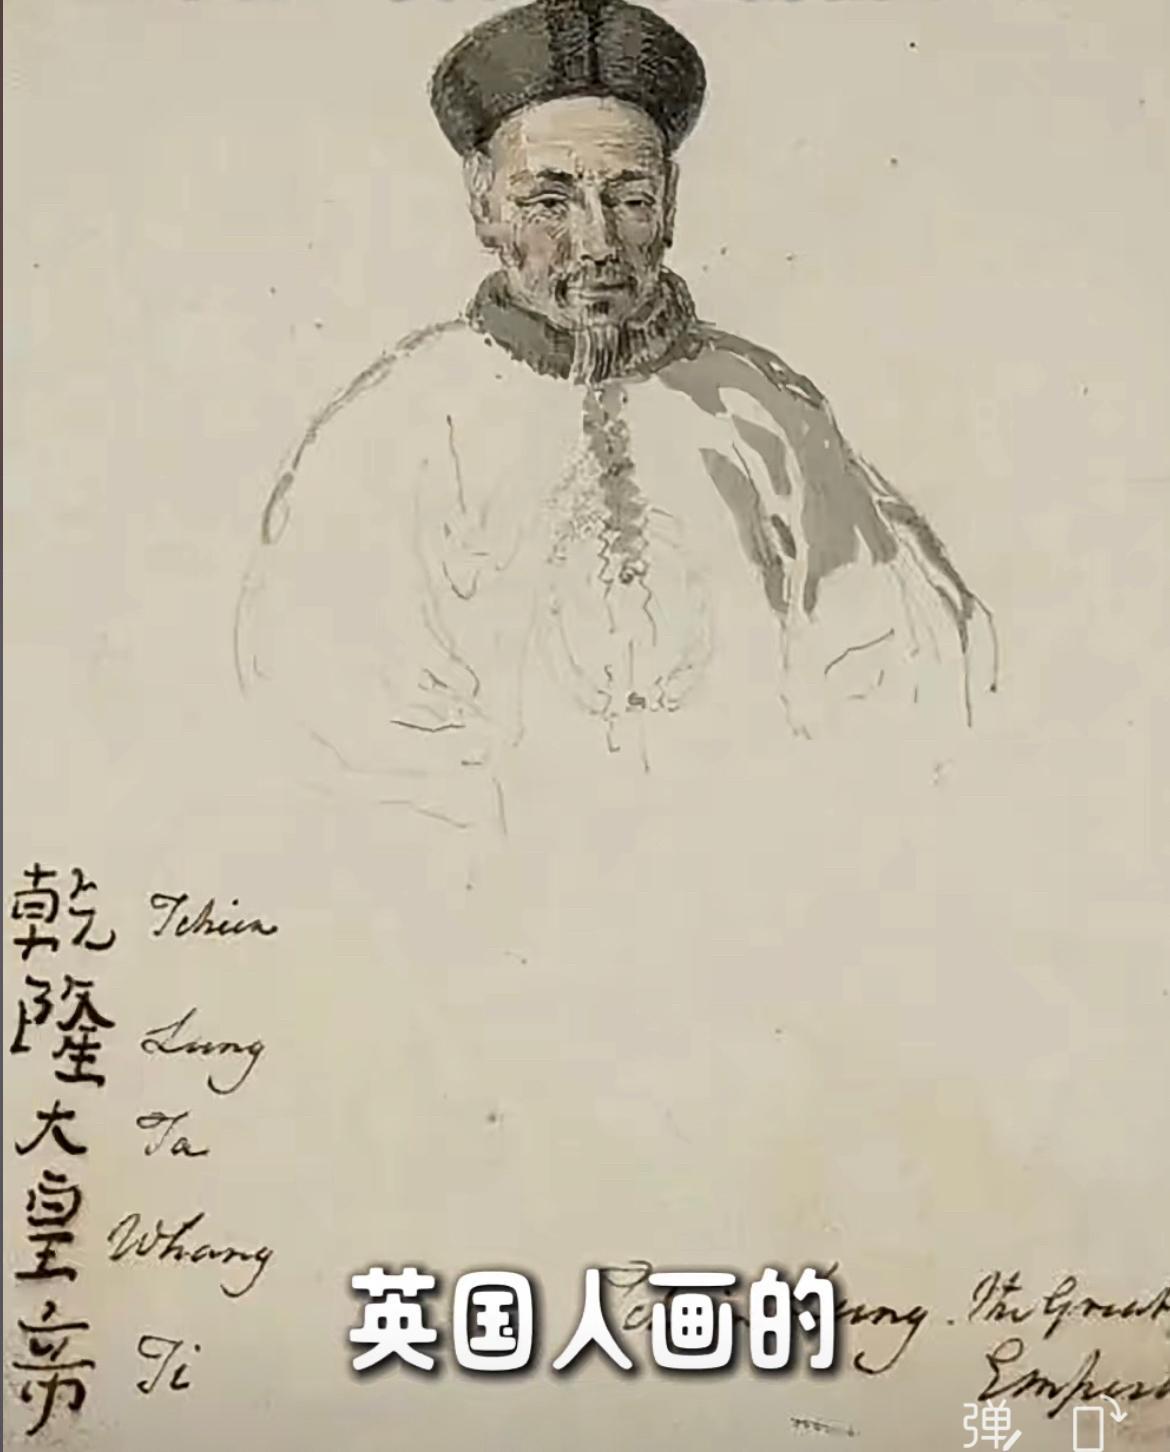 乾 Tchien
隆 Lung
大 Ta
皇 Whang
帝 Ti
Lung. The Great
英国人画的
弹